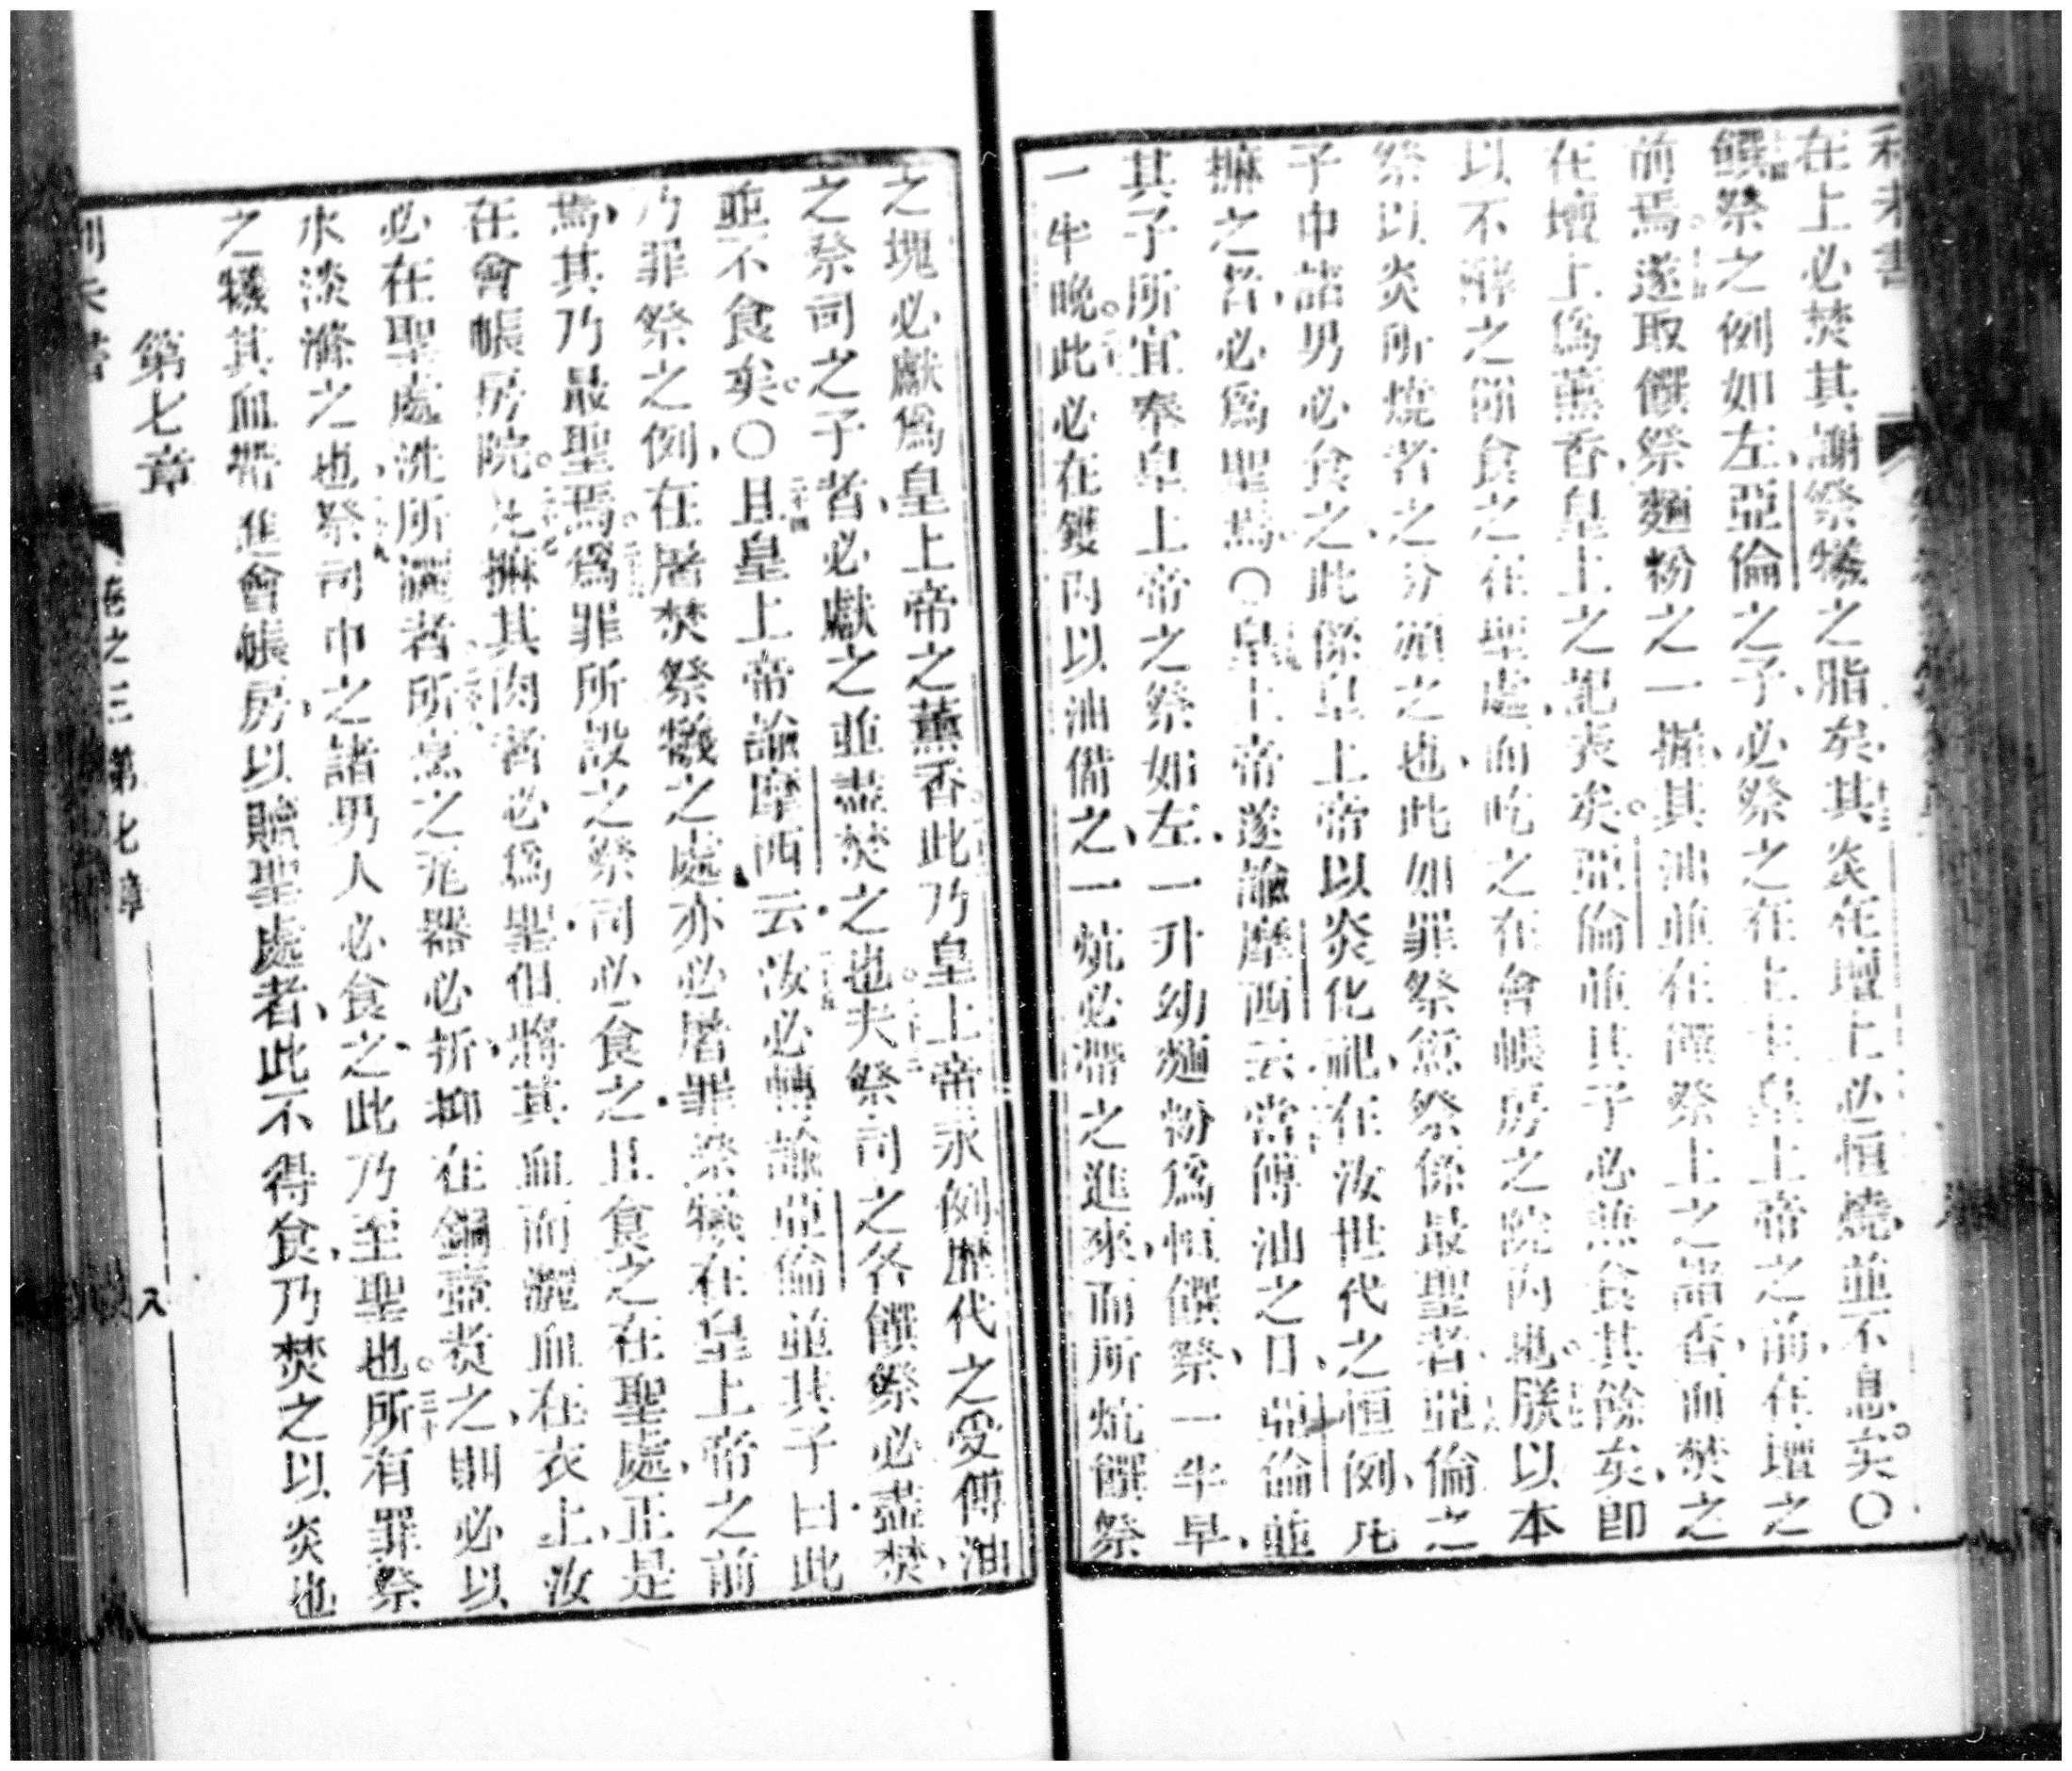 在上必焚其謝祭犧之脂矣其炎在壇上必恒燒並不息矣〇
饌祭之例如左亞倫之子必祭之在上主皇上帝之前在壇之
前焉遂取饌祭麵粉之一握其油並在饌祭上之諸香而焚之
在壇上為薰香皇上之記表矣亞倫並其子必無食其餘矣即
以不酵之餅食之在聖處而吃之在會帳房之院內也朕以本
祭以炎所燒者之分頒之也此如罪祭愆祭係最聖者亞倫之
子巾諸男必食之此係皇上帝以炎化祀在汝世代之恒例凡
撫之者必為聖焉〇皇上帝遂諭摩西云當傅油之日亞倫並
其子所宜奉皇上帝之祭如左一升幼麵粉為恒饌祭一半早
一半晚此必在鑊內以油備之一炕必帶之進來而所炕饌祭
之塊必獻為皇上帝之薰香此乃皇上帝永例歷代之受傅油
之祭司之子者必獻之並盡焚之也夫祭司之各饌祭必盡焚
並不食矣〇且皇上帝諭摩西云汝必轉諭亞倫並其子曰此
乃罪祭之例在屠焚祭犧之處亦必屠罪祭犧在皇上帝之前
焉其乃最聖焉為罪所設之祭司必食之且食之在聖處正是
在會帳房院凡撫其肉者必為聖但將其血而灑血在衣上汝
必在聖處洗所灑者所烹之瓦器必折抑在銅壺煑之則必以
水淡滌之也祭司巾之諸男人必食之此乃至聖也所有罪祭
之犧其血帶進會帳房以贖聖處者此不得食乃焚之以炎也
第七章
卷之三第七章 八